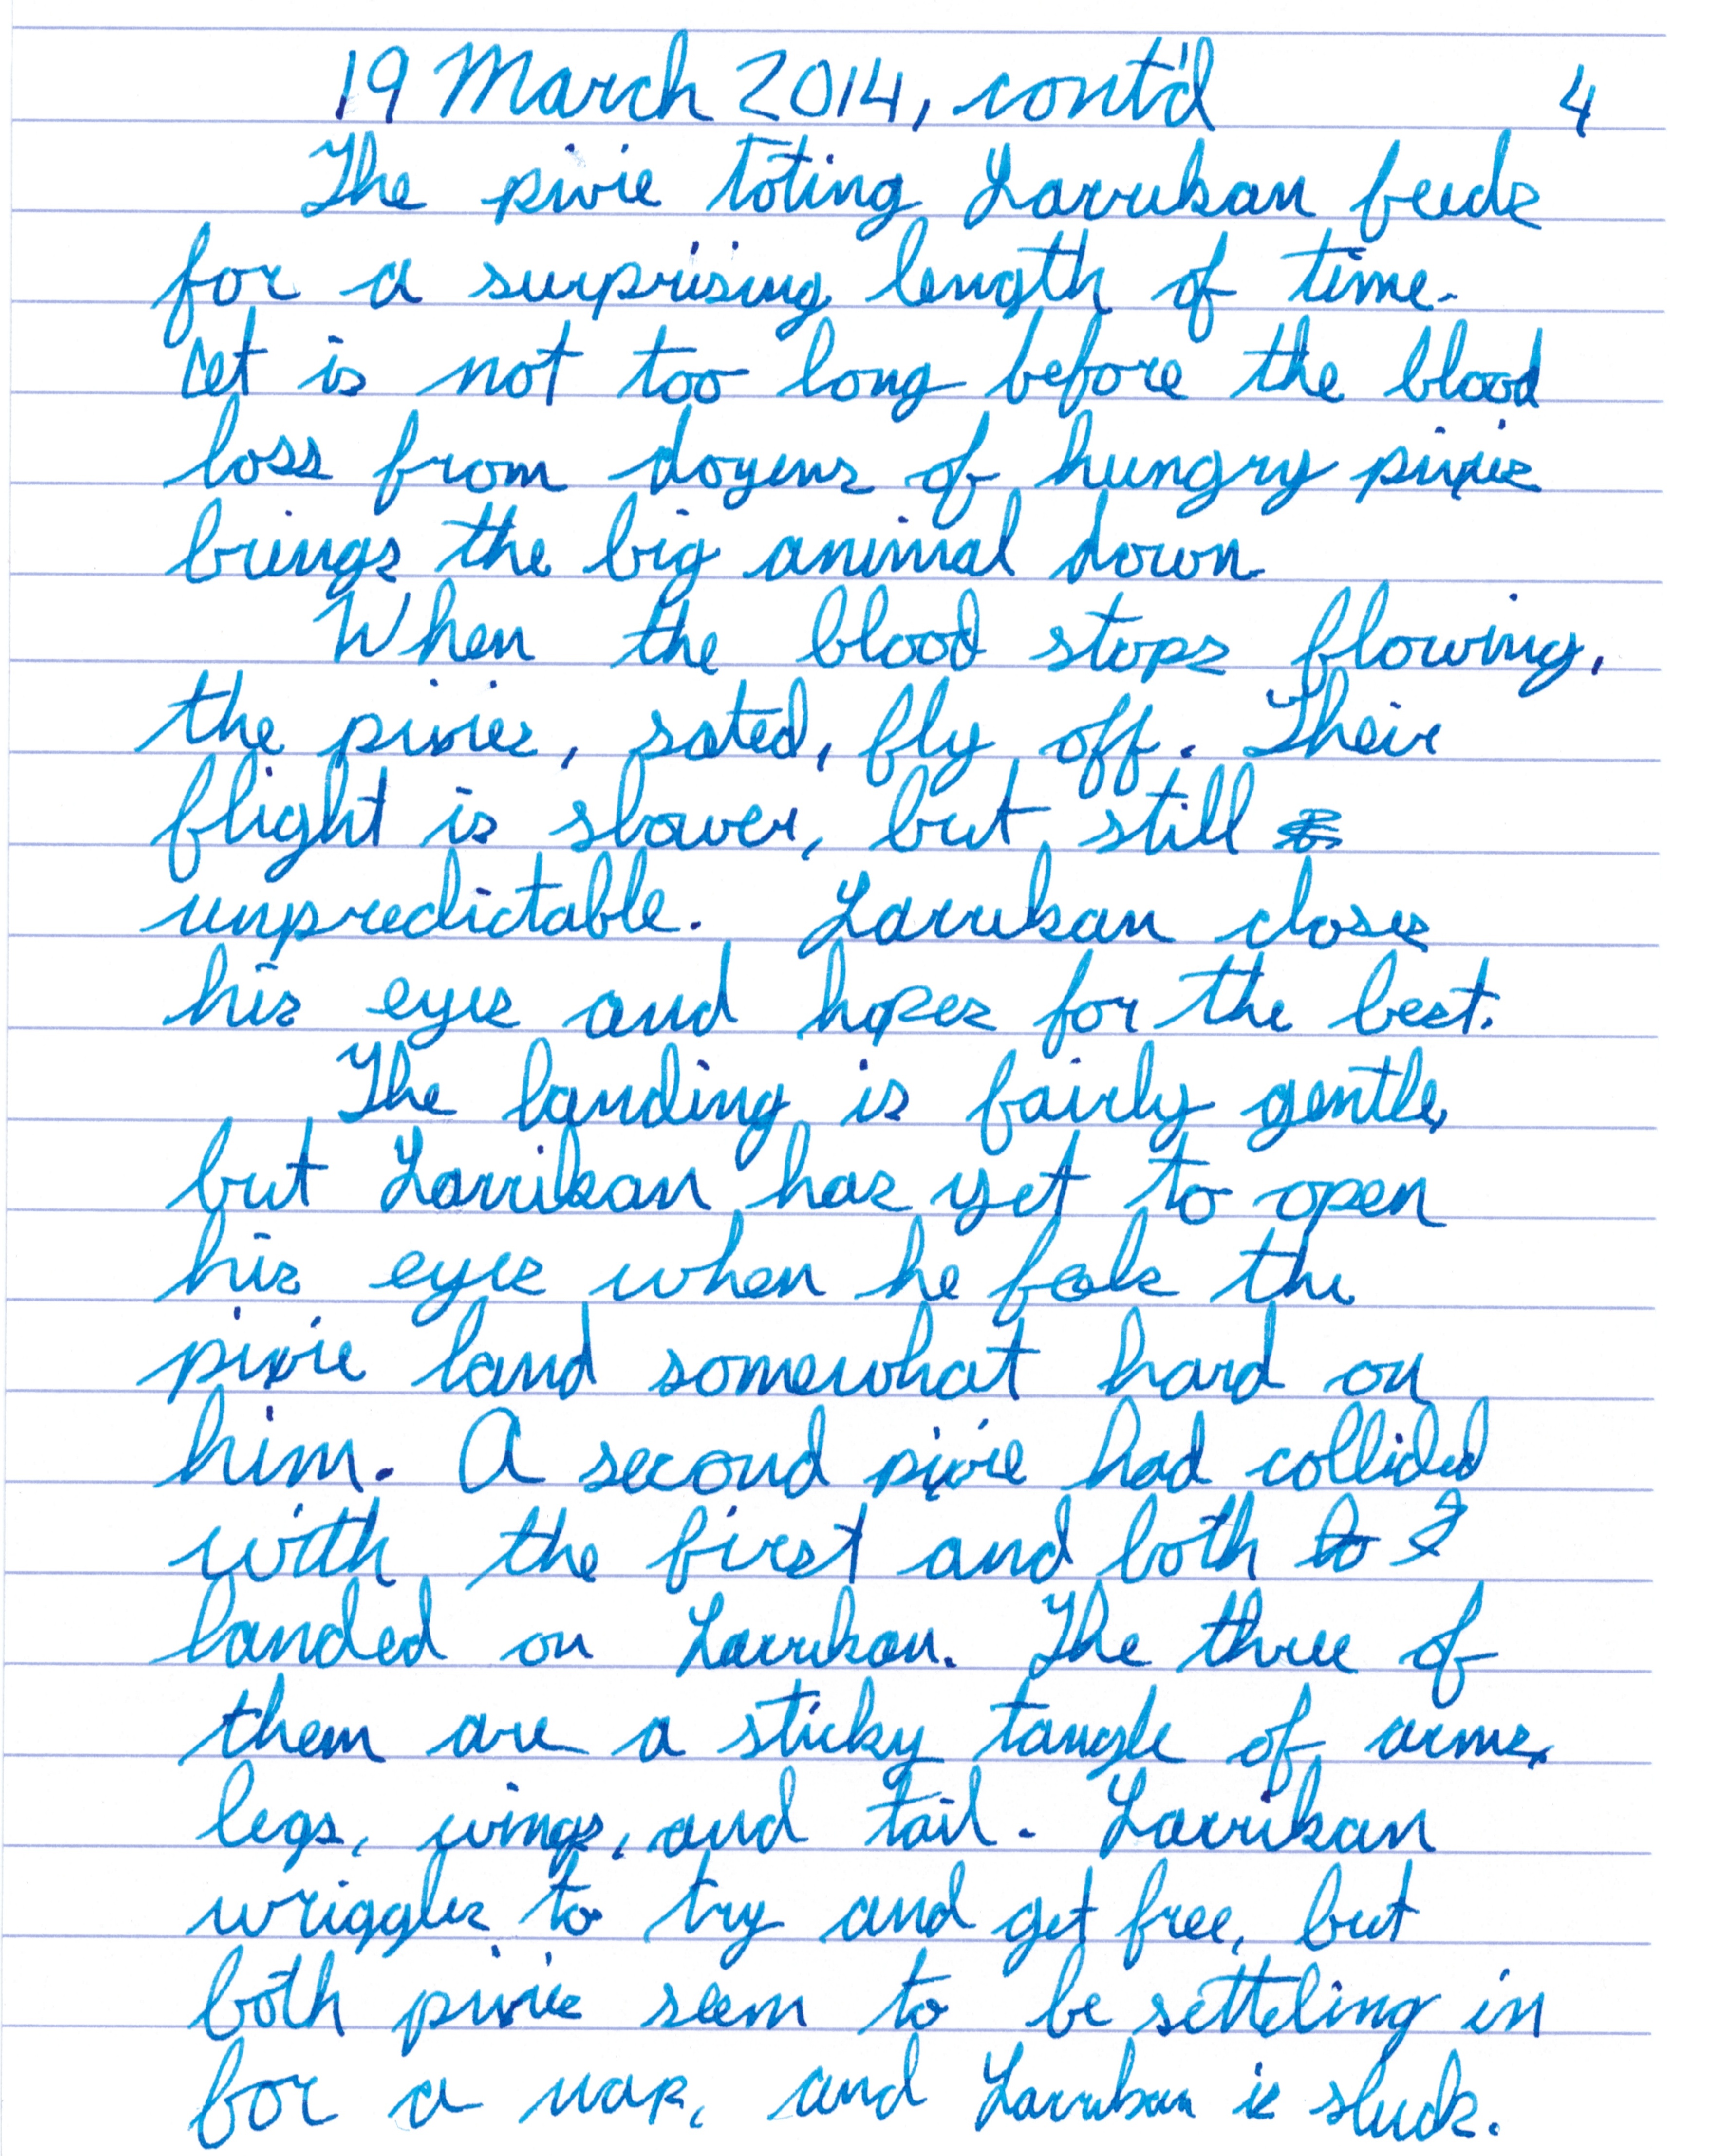 19 March 2014, cont'd 4
The pixie toting Larrikan feeds
for a surprising length of time.
Yet is not too long before the blood
loss from dozens of hungry pixies
brings the big animal down
When the blood stops flowing,
the pixies, sated, fly off. Their
flight is slower, but still
unpredictable. Larrikan closes
his eyes and hopes for the best.
The landing is fairly gentle,
but Larrikan has yet to open
his eyes when he feels the
pixie land somewhat hard on
him. A second pixie had collided
with the first and both to I
landed on Larrikan. The three of
them are a sticky tangle of arms,
legs, wings, and tail. Larrikan
wriggles to try and get free, but
both pixies seem to be setteling in
for a nap, and Larrikan is stuck.